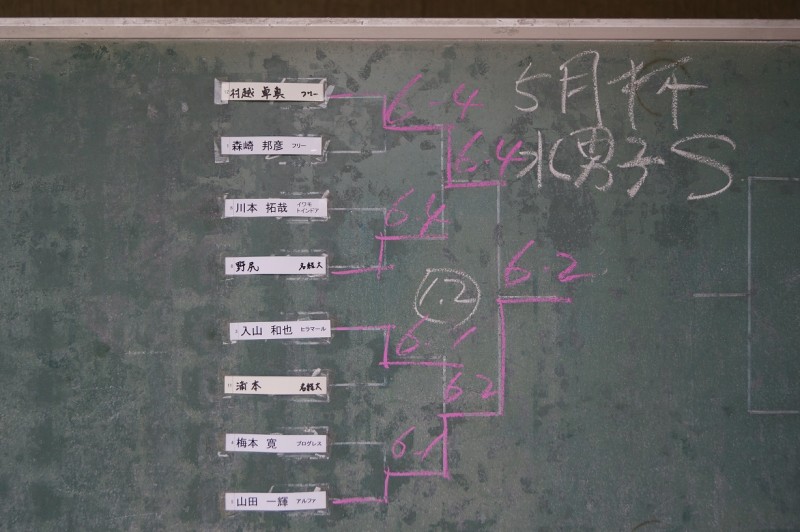 5月杯
水男子S
村越 卓真 フリー
6-4
森崎 邦彦 フリー
6.4
川本 拓哉 イワキトインドア
6.4
野尻 名経大
6.2
1.2
入山 和也 ヒラマール
6.1
浦本 名経大
6.2
梅本 寛 プログレス
6.1
山田 一輝 アルファ